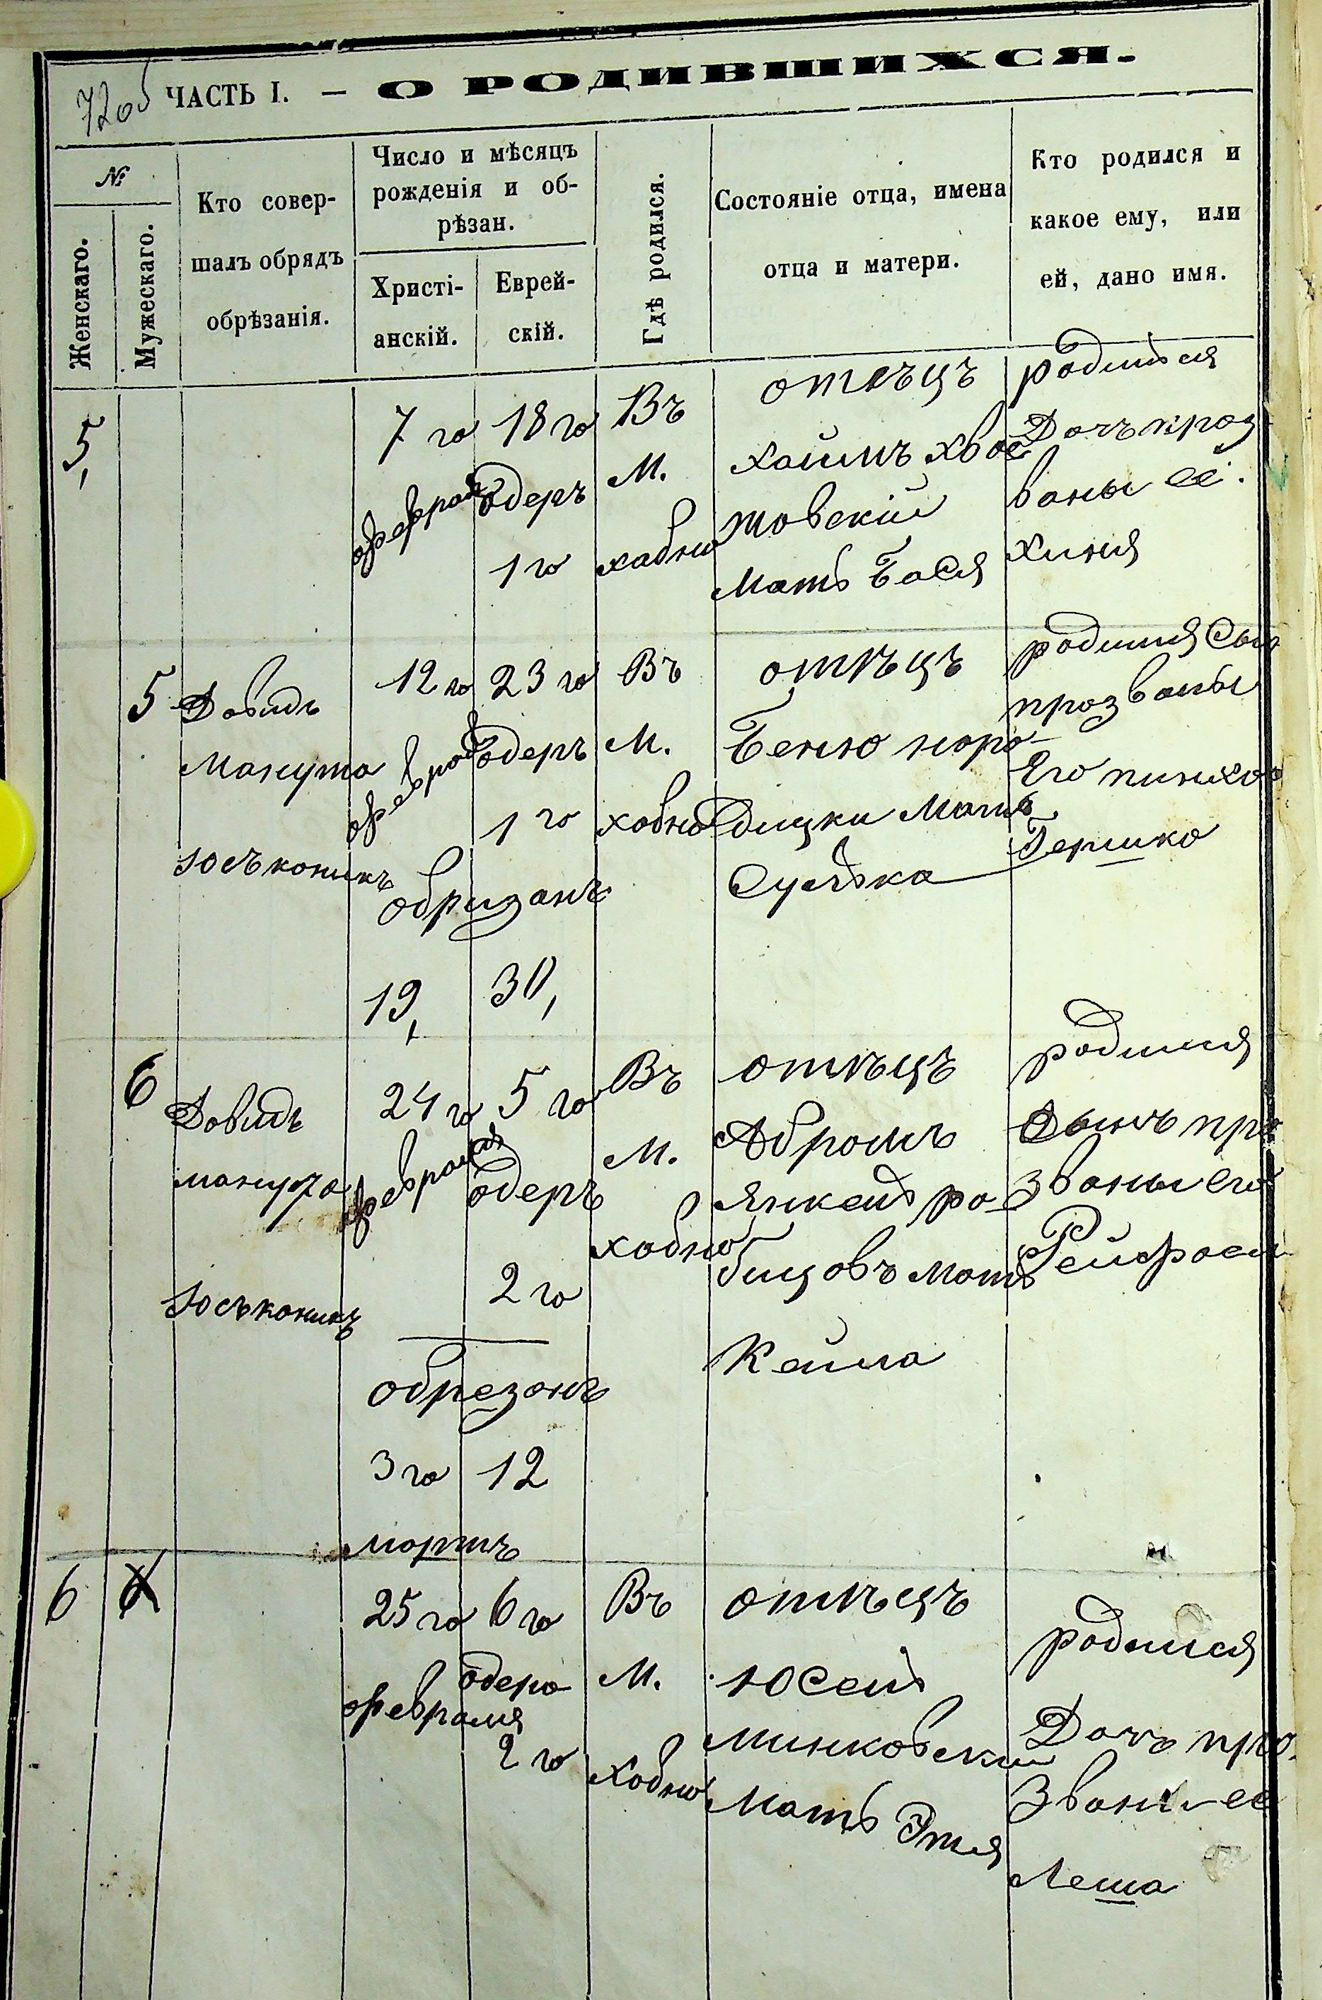 72об
ЧАСТЬ I. — О РОДИВШИХСЯ.
№
Женскаго.
Мужескаго.
Кто совер-
шалъ обрядъ
обрѣзанія.
Число и мѣсяцъ
рожденія и об-
рѣзан.
Христі-
анскій.
Еврей-
скій.
Гдѣ родился.
Состояніе отца, имена
отца и матери.
Кто родился и
какое ему, или
ей, дано имя.
5,
7 го
февраля
18 го
одеръ
1 го
Въ
М.
хабно
отецъ
хаимъ хвос
товскій
мать Бася
родился
Дочъ проз
ваны ее.
Хиня
5
Довидъ
Манута
Юсъконикъ
12 го
февраля
23 го
одеръ
1 го
обризанъ
19,
30,
Въ
М.
хобно
отецъ
Беню норо-
дицки Мать
Сулька
родился Сын
прозваны
Его пинхос
Гершко
6
Довидъ
манута
Юсъконикъ
24 го
февраля
5 го
одеръ
2 го
обрезанъ
3 го
12
мортъ
Въ
М.
хобно
отецъ
Абромъ
Янкель ро-
бицовъ мать
Кейла
родился
Сынъ про
званы его
Рейфоел
6
6
25 го
февраля
6 го
одера
2 го
Въ
М.
Хобно
отецъ
Юсель
Минковски
Мать Этля
родился
Дочъ про-
званы ее
Леша